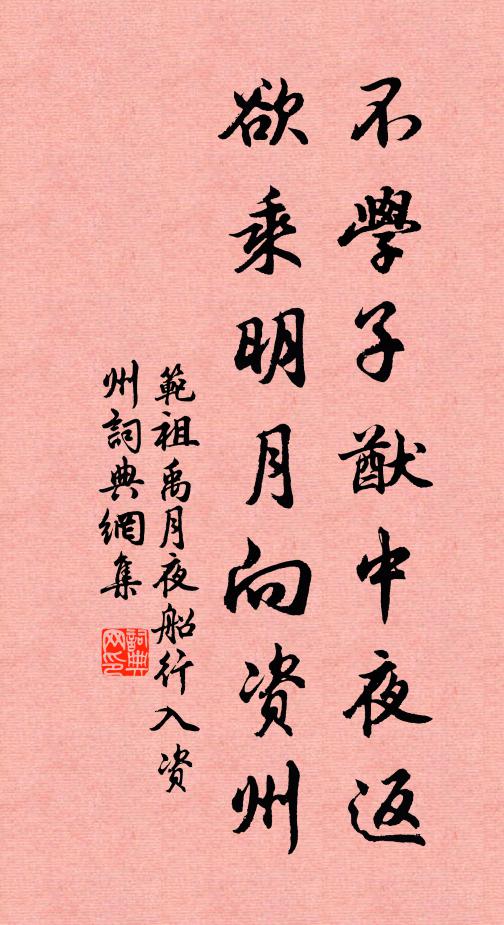 不學子猷中夜返
欲乘明月向资州
範祖禹月夜船行入资
州詞典網集
詞典
网印